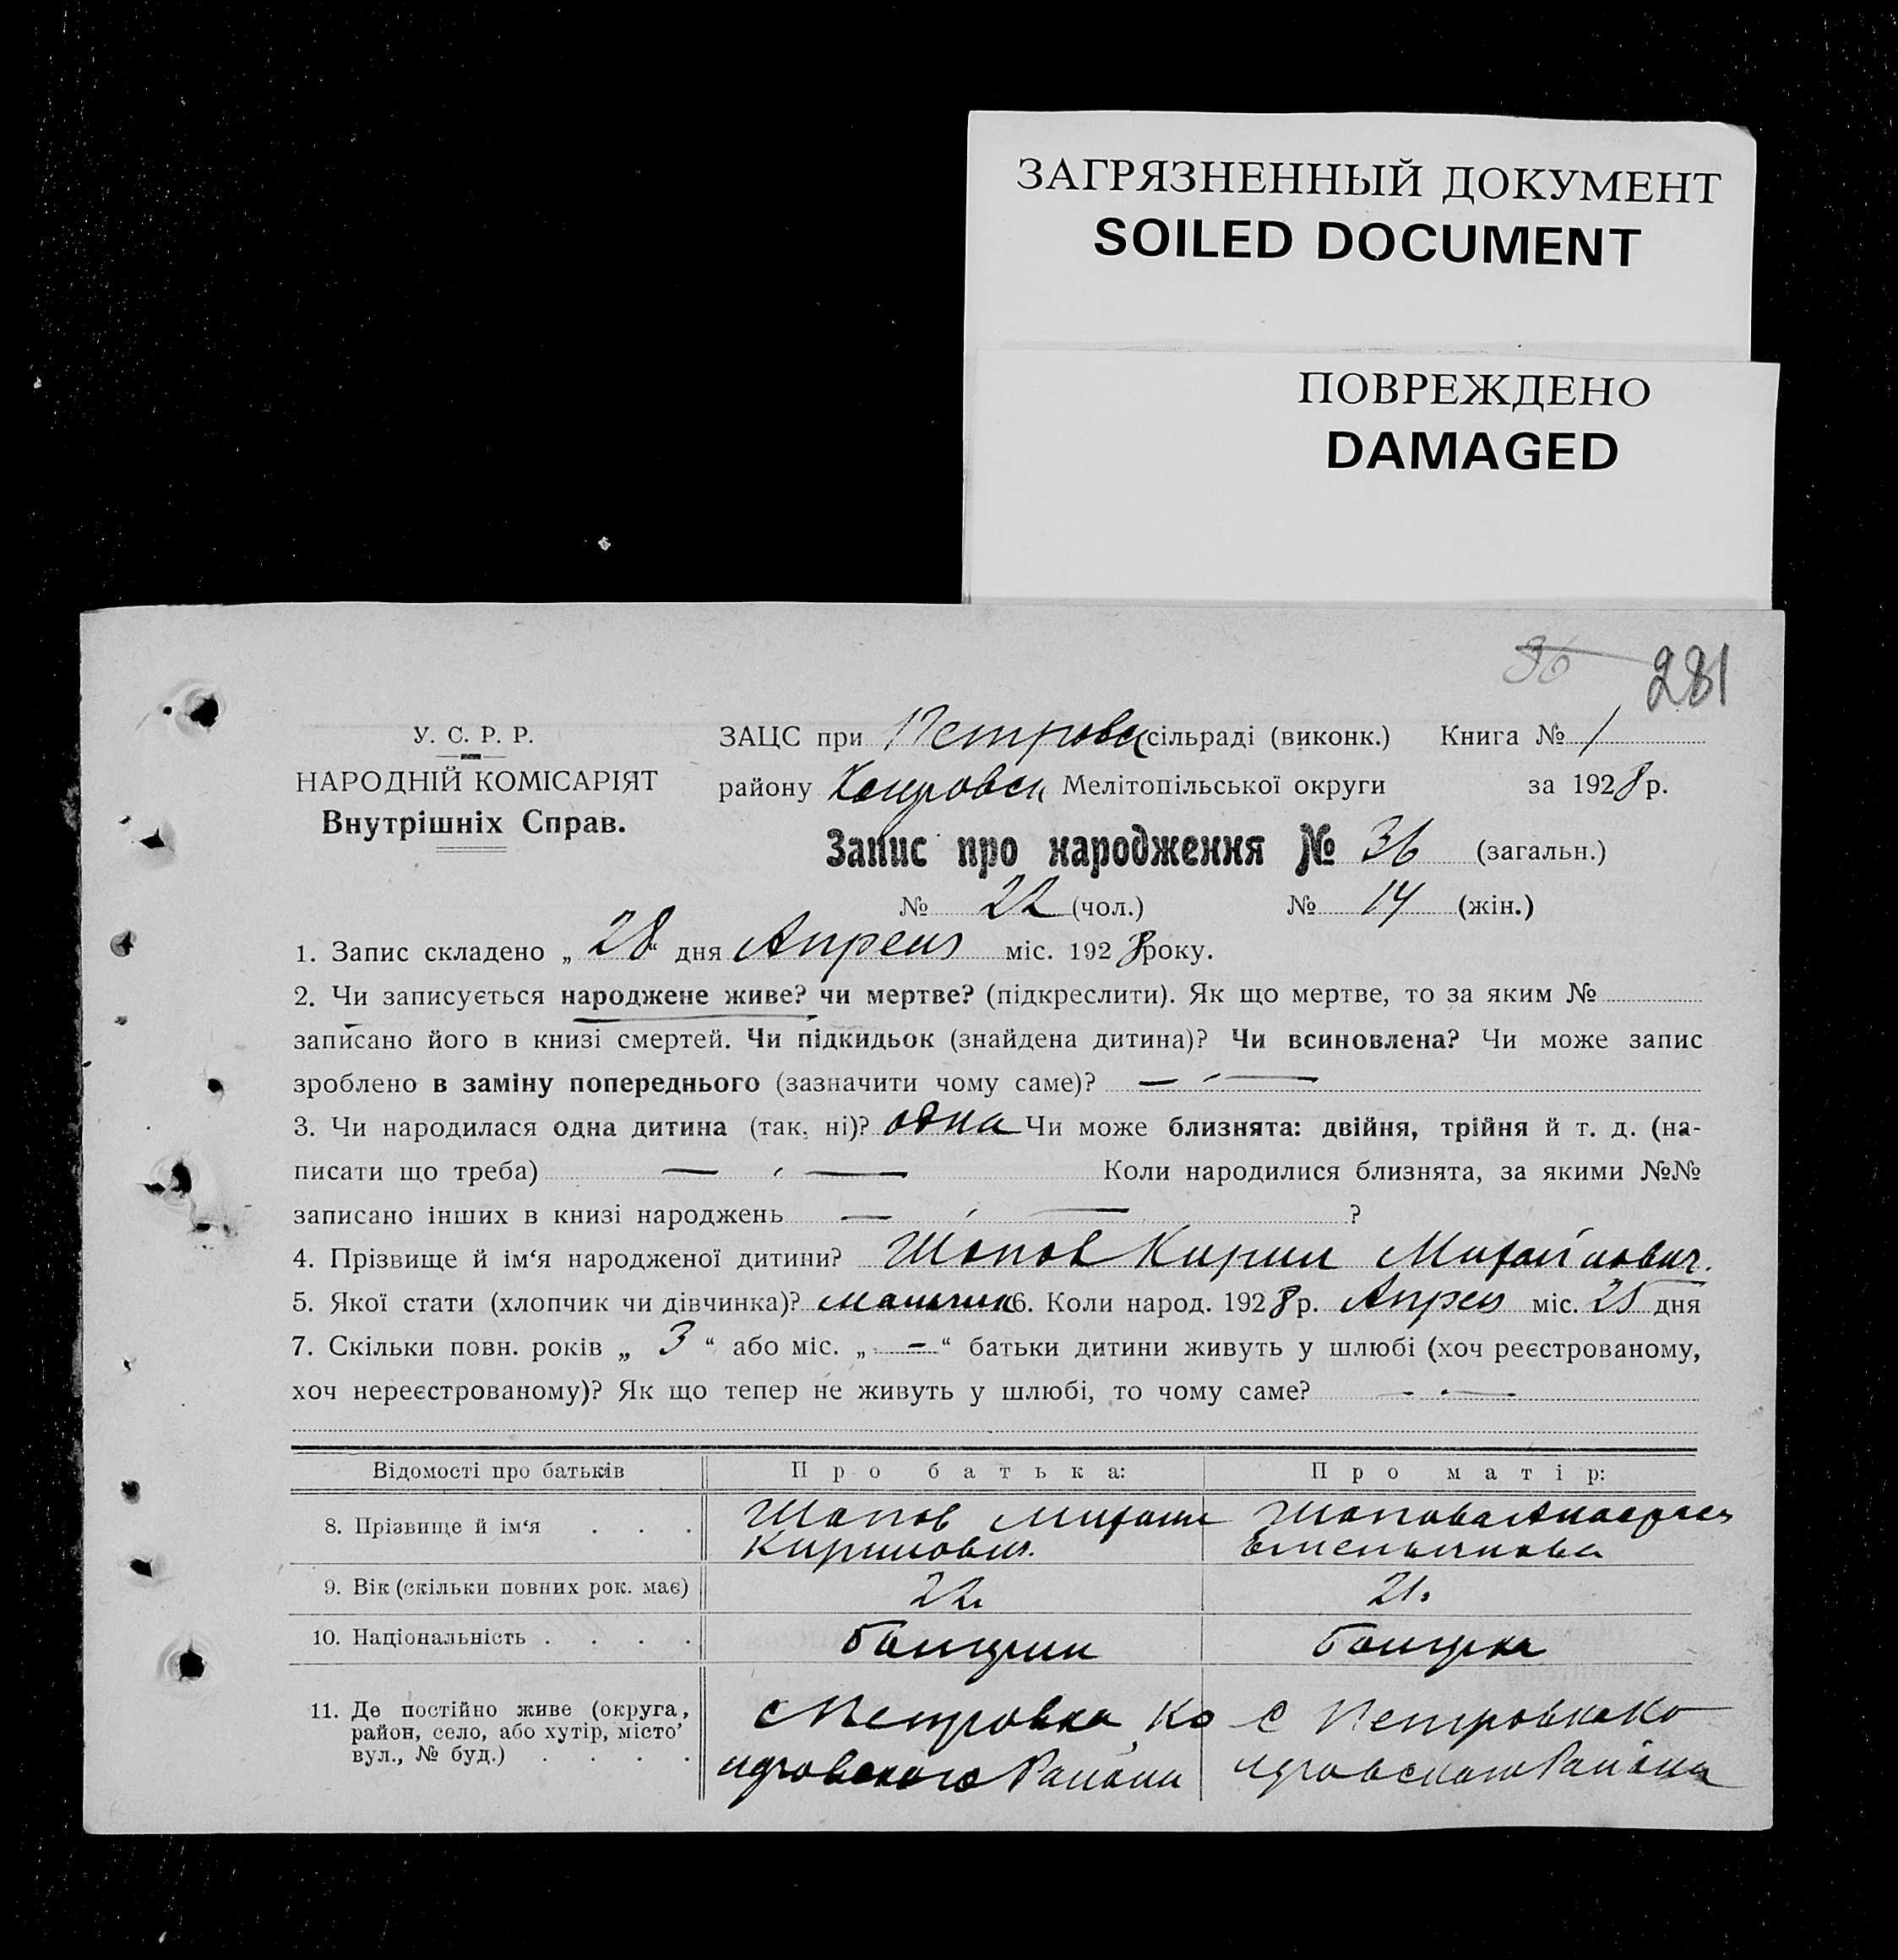 ЗАГРЯЗНЕННЫЙ ДОКУМЕНТ
SOILED DOCUMENT
ПОВРЕЖДЕНО
DAMAGED
36 281
У. С. Р. Р.
НАРОДНІЙ КОМІСАРІЯТ
Внутрішніх Справ.
ЗАЦС при Петровск сільраді (виконк.) Книга № 1
району Мелітопільської округи за 1928 р.
Запис про народження № 36 (загальн.)
№ 22 (чол.) № 14 (жін.)
1. Запис складено „ 28 “ дня Апреля міс. 1928 року.
2. Чи записується народжене живе? чи мертве? (підкреслити). Як що мертве, то за яким №
записано його в книзі смертей. Чи підкидьок (знайдена дитина)? Чи всиновлена? Чи може запис
зроблено в заміну попереднього (зазначити чому саме)? — —
3. Чи народилася одна дитина (так, ні)? одна Чи може близнята: двійня, трійня й т. д. (на-
писати що треба) — — Коли народилися близнята, за якими №№
записано інших в книзі народжень — — ?
4. Прізвище й ім‘я народженої дитини? Шопов Кирил Михайлович.
5. Якої стати (хлопчик чи дівчинка)? мальчик 6. Коли народ. 1928 р. Апреля міс. 25 дня
7. Скільки повн. років „ 3 “ або міс. „ - “ батьки дитини живуть у шлюбі (хоч реєстрованому,
хоч нереєстрованому)? Як що тепер не живуть у шлюбі, то чому саме? - —
Відомості про батьків Про батька: Про матір:
8. Прізвище й ім‘я . . . Шопов Михаил Шопова
Кирилович.
9. Вік (скільки повних рок. має) 22. 21.
10. Національність . . . . болгарин болгарка
11. Де постійно живе (округа, с Петровка Ко с Петровка Ко
район, село, або хутір, місто’ Района Района
вул., № буд.) . . . .